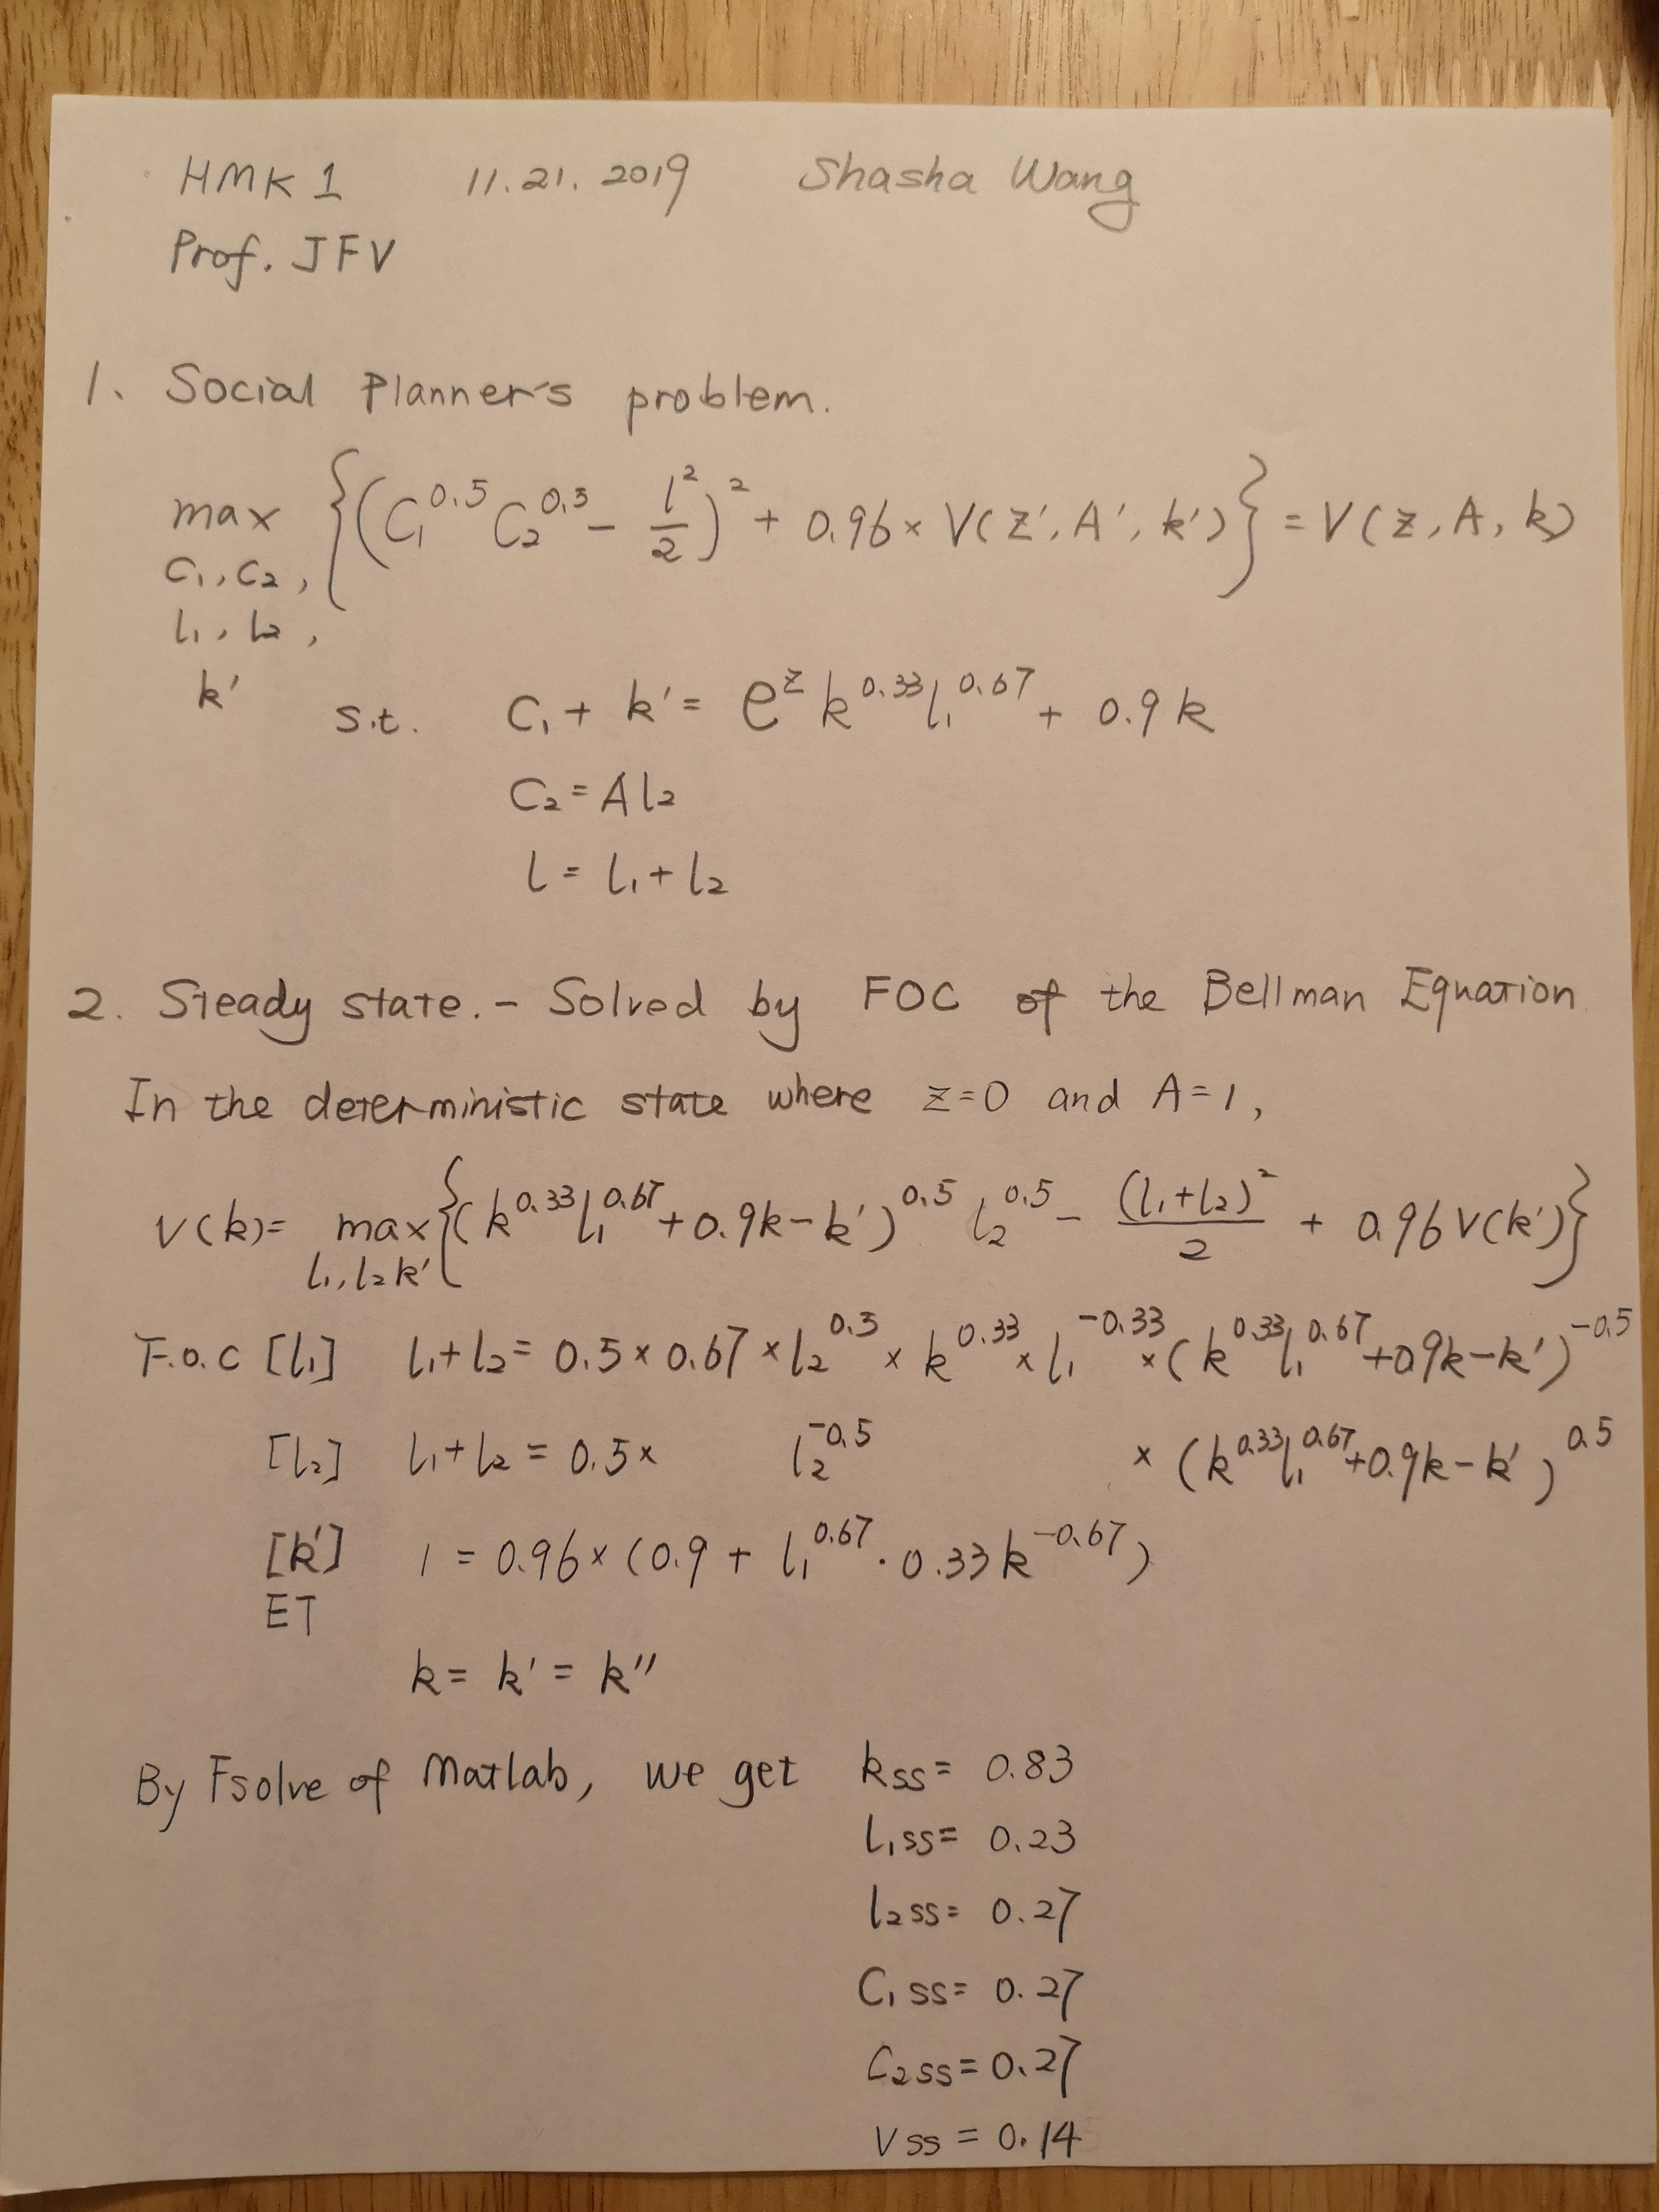 HMK 1 11.21.2019 Shasha Wang
Prof. JFV
1. Social Planner's problem.
max {(C₁^0.5 C₂^0.5 - l²/2)² + 0.96 × V(z', A', k')} = V(z, A, k)
C₁, C₂,
l₁, l₂,
k'
s.t. C₁ + k' = e^z k^0.33 l₁^0.67 + 0.9k
C₂ = Al₂
l = l₁ + l₂
2. Steady state. - Solved by FOC of the Bellman Equation
In the deterministic state where z=0 and A=1,
V(k) = max {(k^0.33 l₁^0.67 + 0.9k - k')^0.5 l₂^0.5 - (l₁+l₂)²/2 + 0.96 V(k')}
l₁, l₂ k'
F.O.C [l₁] l₁+l₂ = 0.5 × 0.67 × l₂^0.5 × k^0.33 × l₁^-0.33 × (k^0.33 l₁^0.67 + 0.9k - k')^-0.5
[l₂] l₁+l₂ = 0.5 × l₂^-0.5 × (k^0.33 l₁^0.67 + 0.9k - k')^0.5
[k'] 1 = 0.96 × (0.9 + l₁^0.67 · 0.33 k^-0.67)
ET
k = k' = k''
By Fsolve of Matlab, we get kss = 0.83
l₁ss = 0.23
l₂ss = 0.27
C₁ss = 0.27
C₂ss = 0.27
Vss = 0.14